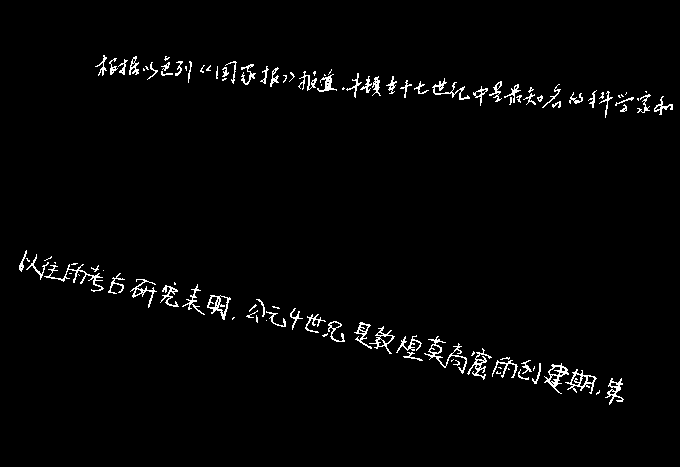 根据以色列《国家报》报道，牛顿在十七世纪中是最知名的科学家和
以往的考古研究表明，公元4世纪是敦煌莫高窟的创建期，第